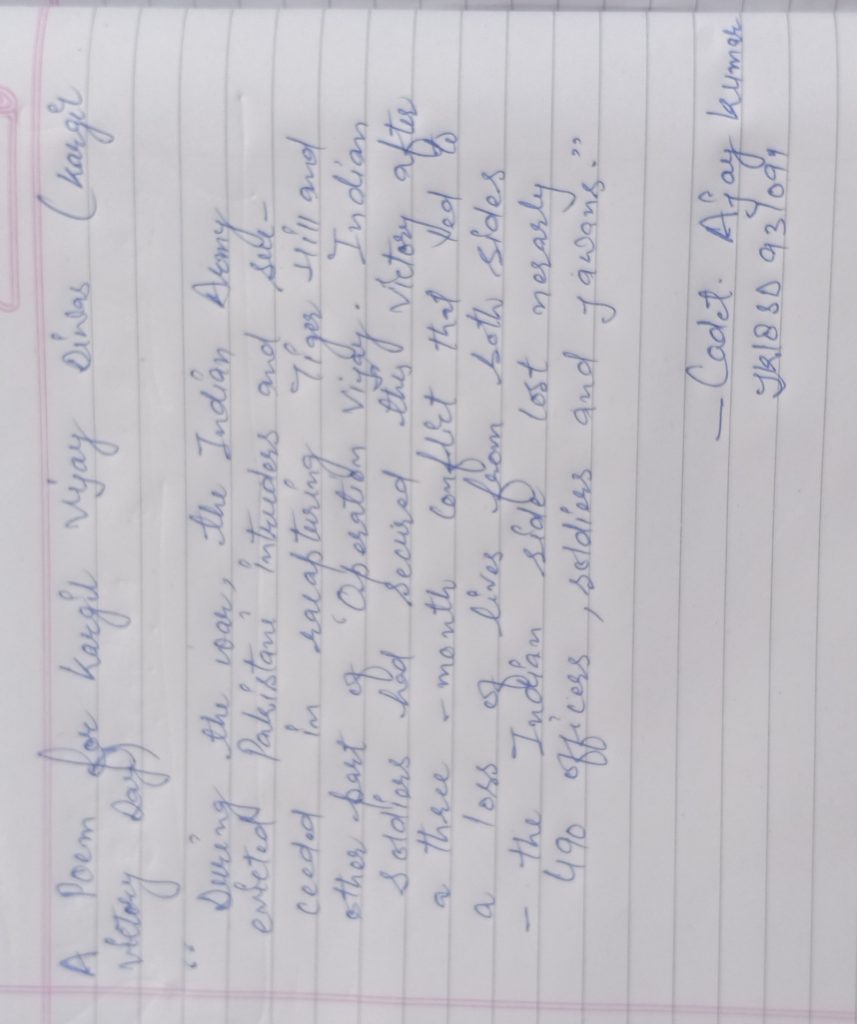 A Poem for Kargil Vijay Diwas (Kargil
Victory Day)
“ During the war, the Indian Army
evicted Pakistani intruders and suc-
ceeded in recapturing Tiger Hill and
other part of 'Operation Vijay. Indian
soldiers had secured this victory after
a three - month conflict that led to
a loss of lives from both sides
- the Indian side lost nerarly
490 officers, soldiers and jawans.”
- Cadet. Ajay Kumar